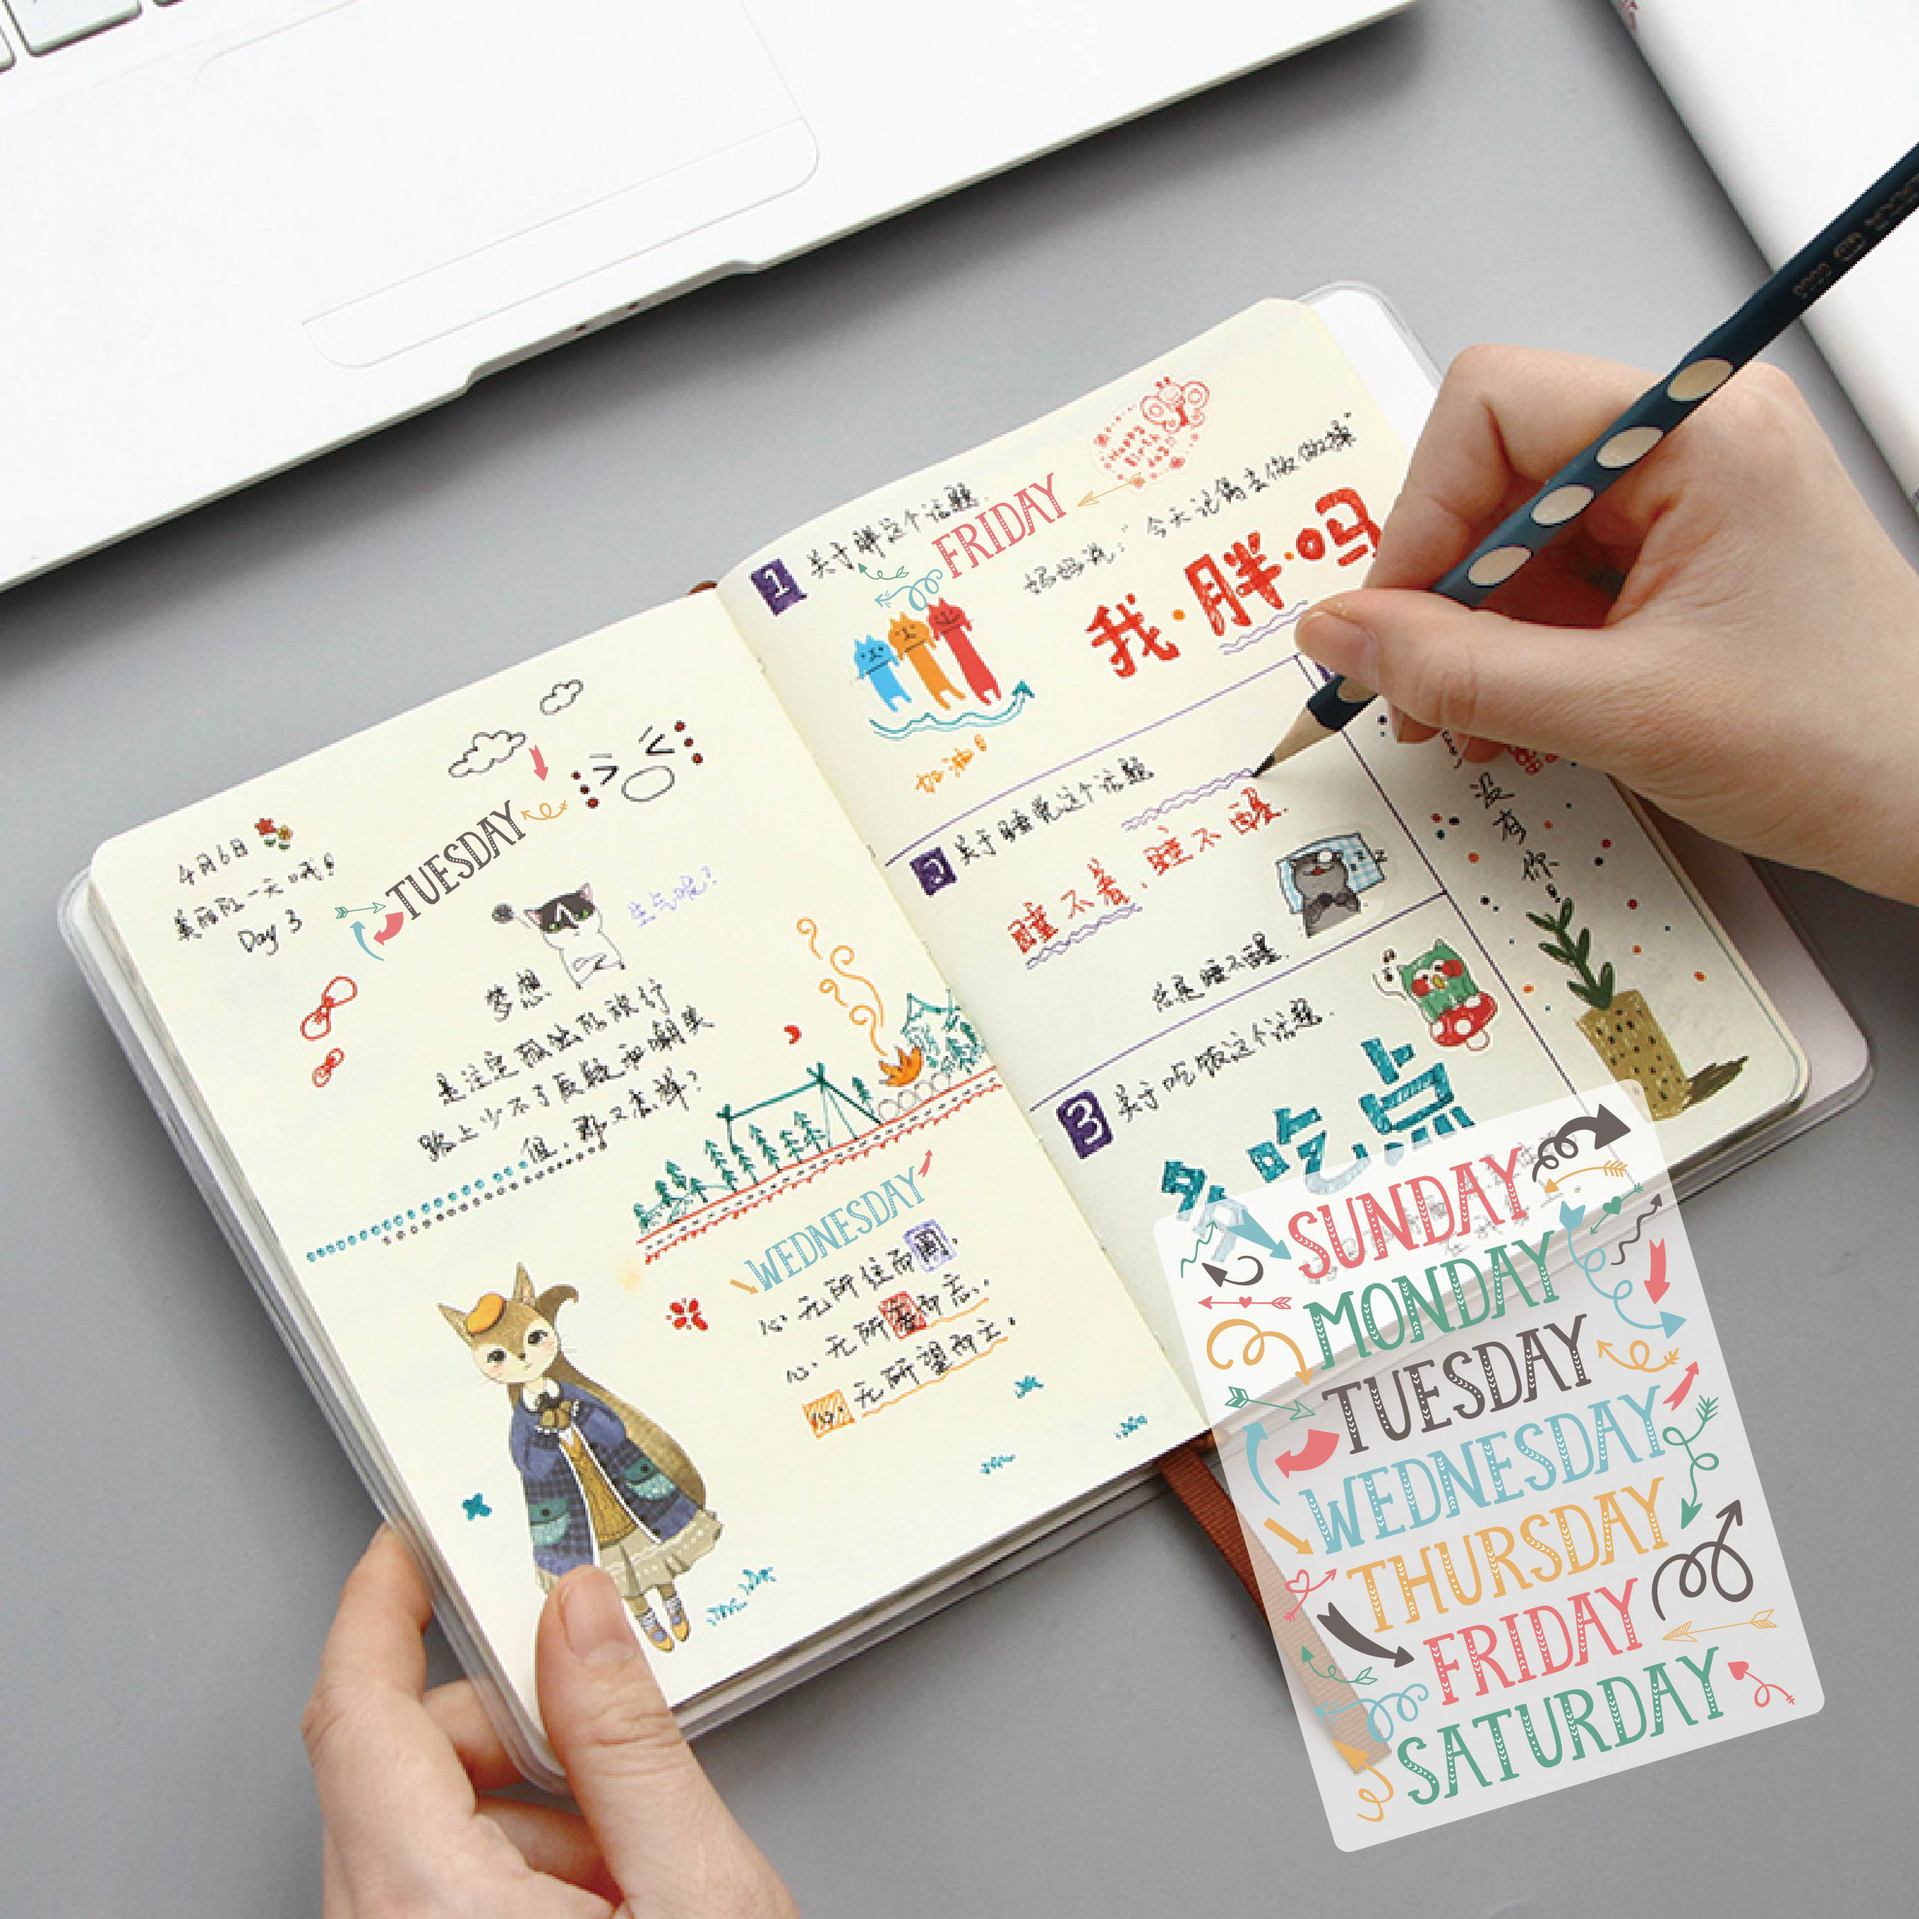 4月6日
美丽的一天哦!
Day 3
TUESDAY
生气呢?
梦想
是注定孤独的旅行
路上少不了质疑和嘲笑
但,那又怎样?
WEDNESDAY
心·无所住而
心·无所
无所望而立。
1
关于胖这个话题
FRIDAY
Happy
Birth
day
妈妈说:"今天记得去做做操"
我·胖·吗
加油!
2
关于睡觉这个话题
睡不着,睡不醒.
总是睡不醒.
3
关于吃饭这个话题.
多吃点
没有你!
SUNDAY
MONDAY
TUESDAY
WEDNESDAY
THURSDAY
FRIDAY
SATURDAY